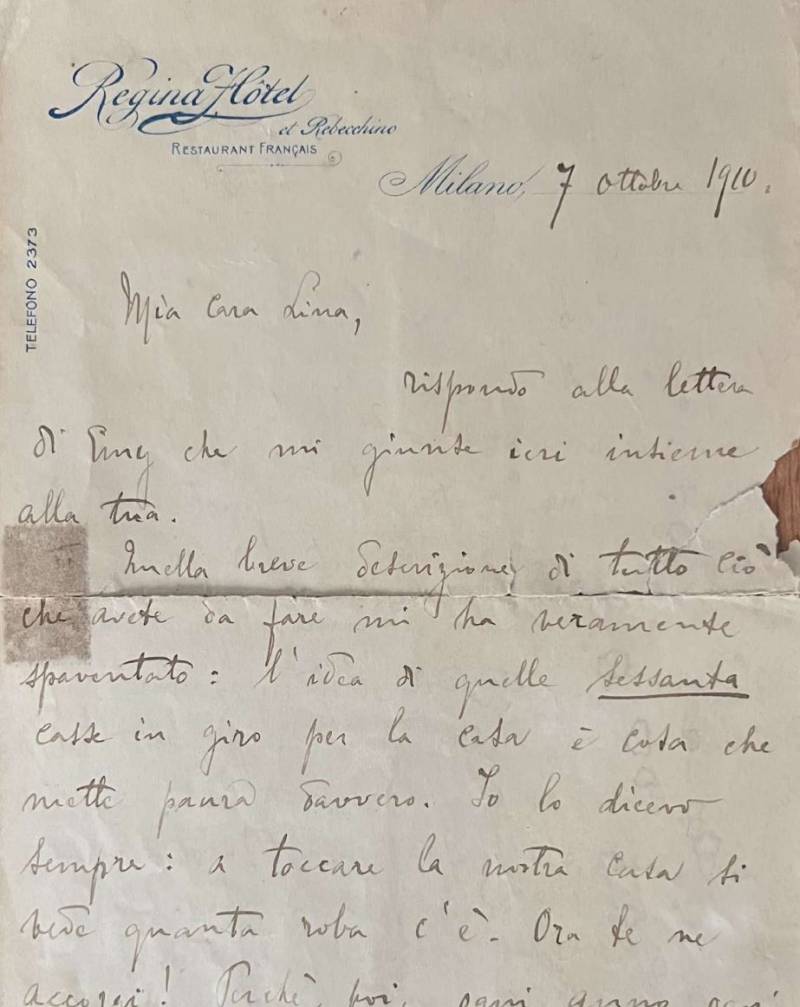 Regina Hôtel
et Rebecchino
RESTAURANT FRANÇAIS
TELEFONO 2373
Milano, 7 ottobre 1910.
Mia cara Lina,
rispondo alla lettera
di Emy che mi giunse ieri insieme
alla tua.
Quella breve descrizione di tutto ciò
che avete da fare mi ha veramente
spaventato: l'idea di quelle sessanta
casse in giro per la casa è cosa che
mette paura davvero. Io lo dicevo
sempre: a toccare la nostra casa si
vede quanta roba c'è. Ora te ne
accorgi! Perchè, poi, ogni anno